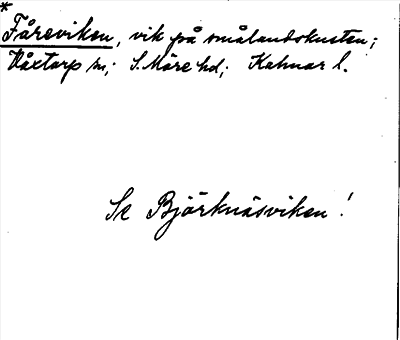 *
Fåreviken, vik på smålandskusten;
Växtorp sn; S. Möre hd; Kalmar l.
Se Björknäsviken!